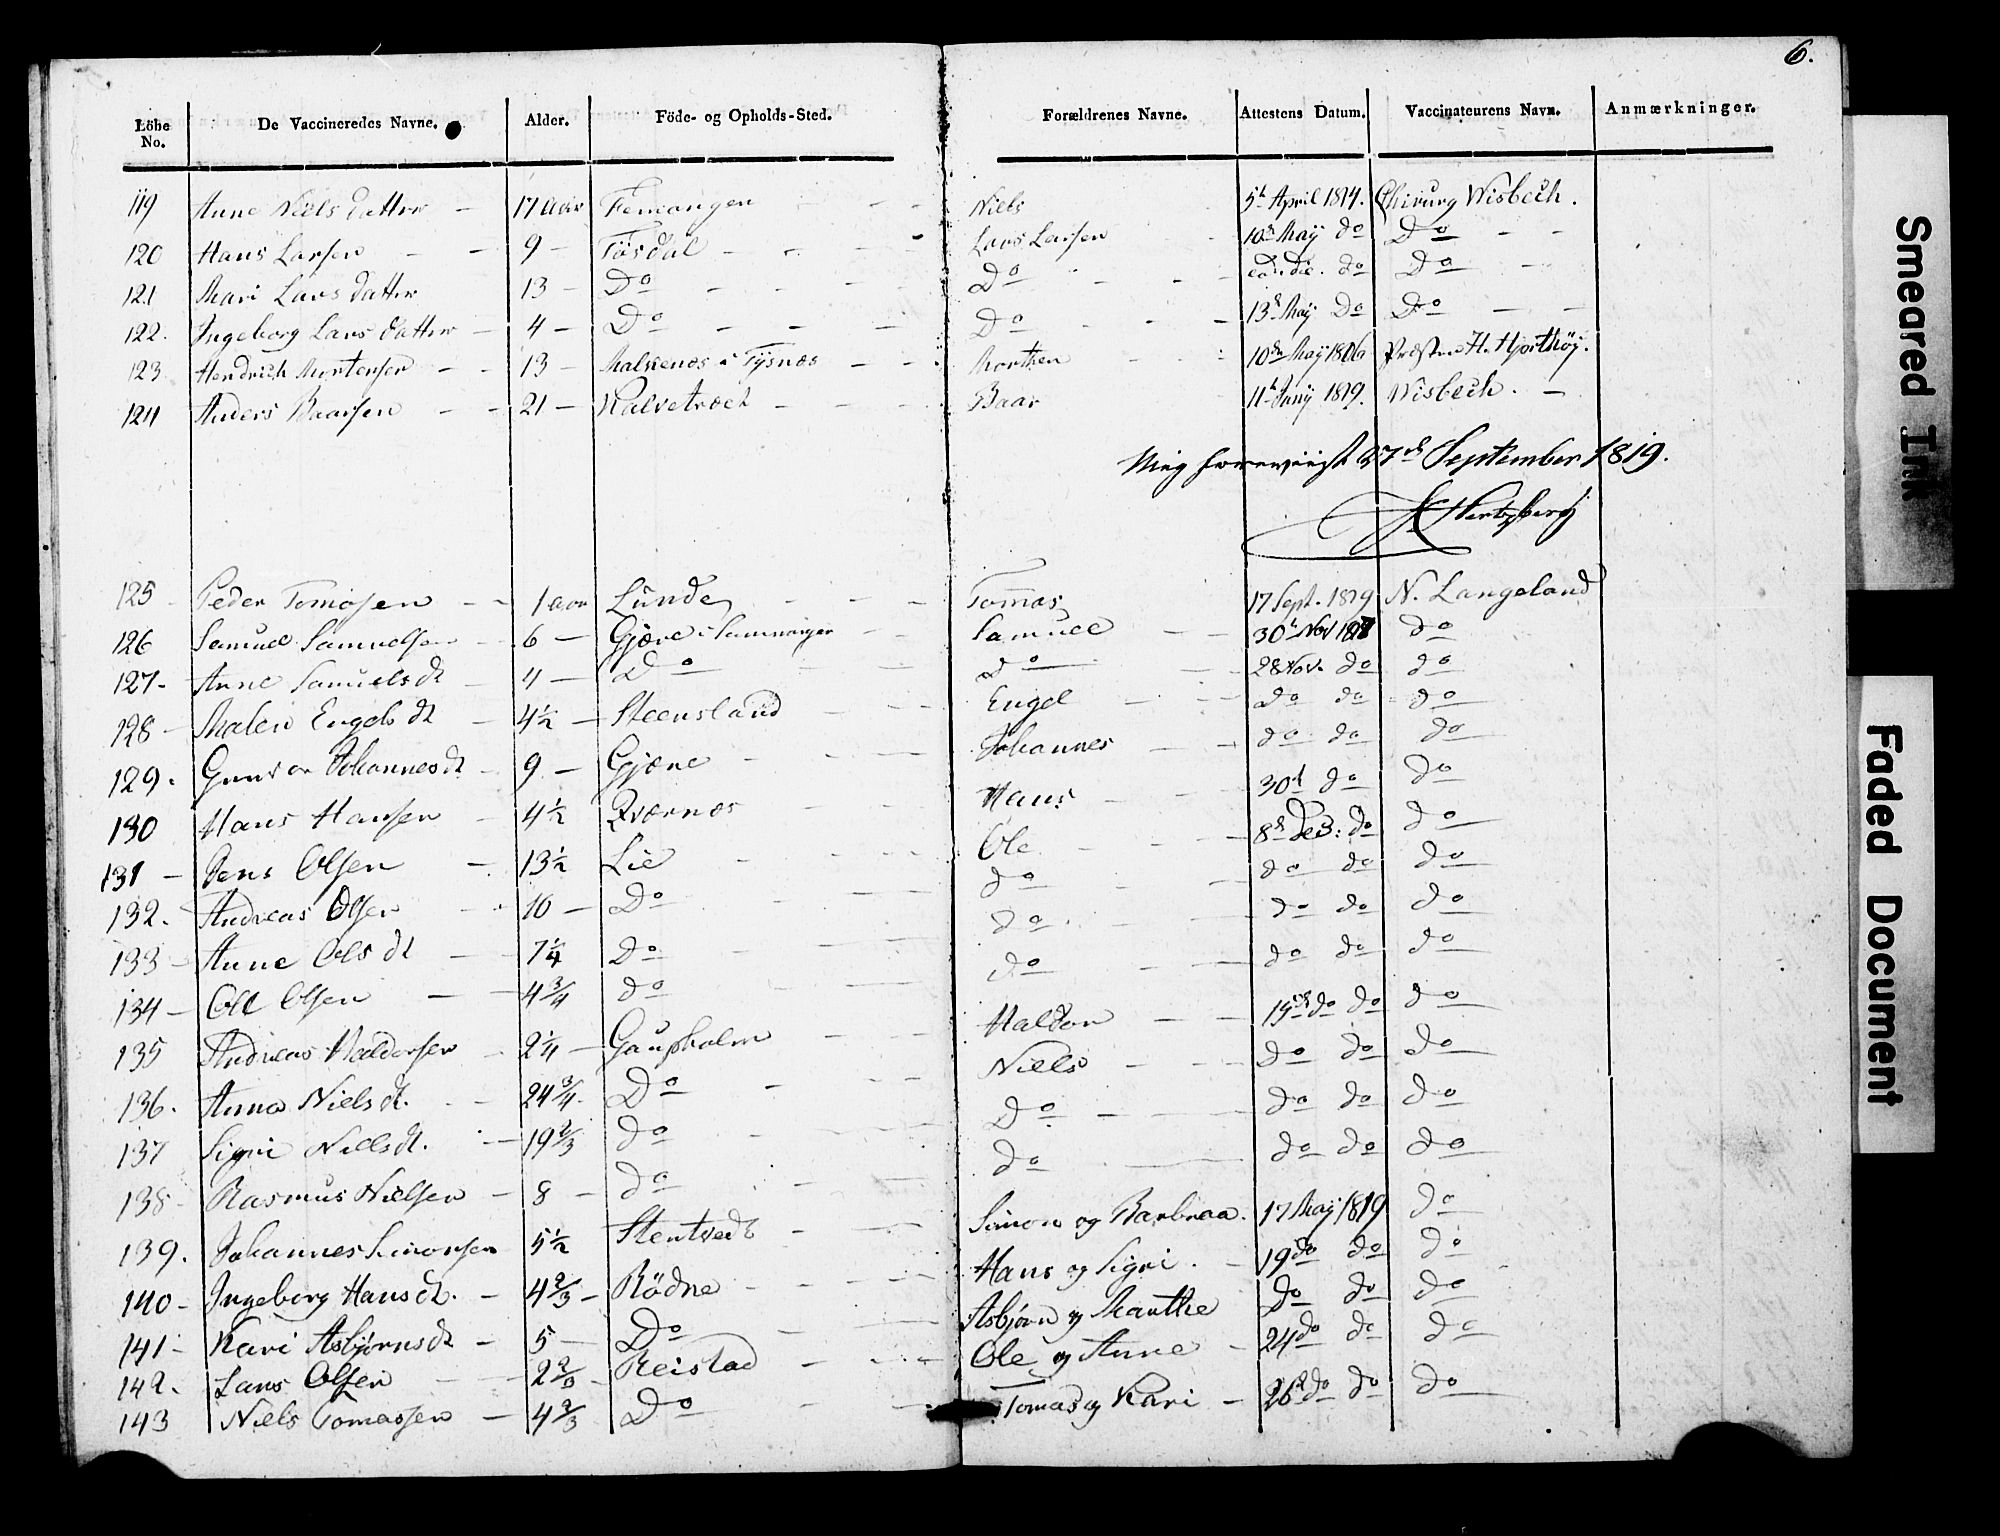 6.
Löbe No. De Vaccineredes Navne. Alder. Föde- og Opholds-Sted. Forældrenes Navne. Attestens Datum. Vaccinateurens Navn. Anmærkninger.
119 Anne Niels datter - 17 aar Femangen - - Niels 5t April 1814. Chirurg Wisbech.
120 Hans Larsen - - 9 - Tösdal - - - Lars Larsen - 10d Maÿ do Do - -
121 Mari Lars datter 13 - Do - - - Do - - - eod: die. do Do -
122. Ingeborg Lars datter - 4 - Do - - - Do - - - 13d Maÿ Do Do - -
123 Hendrich Mortensen - - 13 - Malkenæs i Tÿsnæs - - Morthen - - 10de Maÿ 1806 Præsten H. Hjorthöÿ.
124 Anders Baarsen - - 21 - Kalvetræet - - - Baar 11t Junÿ 1819. Wisbech. -
Mig foreviist 27d September 1819.
Hertzberg
125 - Peder Tomasen - - 1 aar Lunde - - - Tomas 17 Sept. 1819 N. Langeland
126 Samuel Samuelsen - 6 - Gjære i Samnanger - - Samuel - - 30t Nov 1818 do
127 - Anne Samuels dt - 4 - Do - - - do - 28 Nov. do do
128 - Malen Engels dt - 4½ - Steensland - - - Engel - - - do do do
129. Gunvor Johannes dt - 9 - Gjære - - - Johannes - - do do do
130 Hans Hansen - 4½ Qværnæs - - - Hans - - 30d do do
131 - Jens Olsen - 13½ Lie - - - Ole - - - 8d Decb: do do
132. Andreas Olsen - - 10 - Do - - - do - - do do do
133 - Anne Ols dt - 7¼ Do - - - do - - do do do
134 - Ole Olsen - - 4¾ do - - - do - - do do do
135 Andreas Haldorsen - 2¼ - Gaupholm - - - Haldor - - 15d do do do
136. Anna Niels dt. - - 24¾ Do - - - Niels - - - do do do
137 Sigri Niels dt. - 19⅔ do - - Do - - - do do do
138 - Rasmus Nielsen - 8 - do - - do - do do do
139. Johannes Simonsen 5½ Stentvedt - - Simon og Barbraa. 17 Maÿ 1819 do
140 - Ingeborg Hans dt. - 4⅔ - Rödne - - - Hans og Sigri. - 19 do do do
141 - Kari Asbjørns dt - 5 - Do - - Asbjørn og Marthe Do do do
142. Lars Olsen - - 2⅔ - Reistad - - - Ole og Anne - 24 do do do
143 Niels Tomassen - 4⅔ Do - - Tomas og Kari - 26d do do do
Smeared Ink
Faded Document